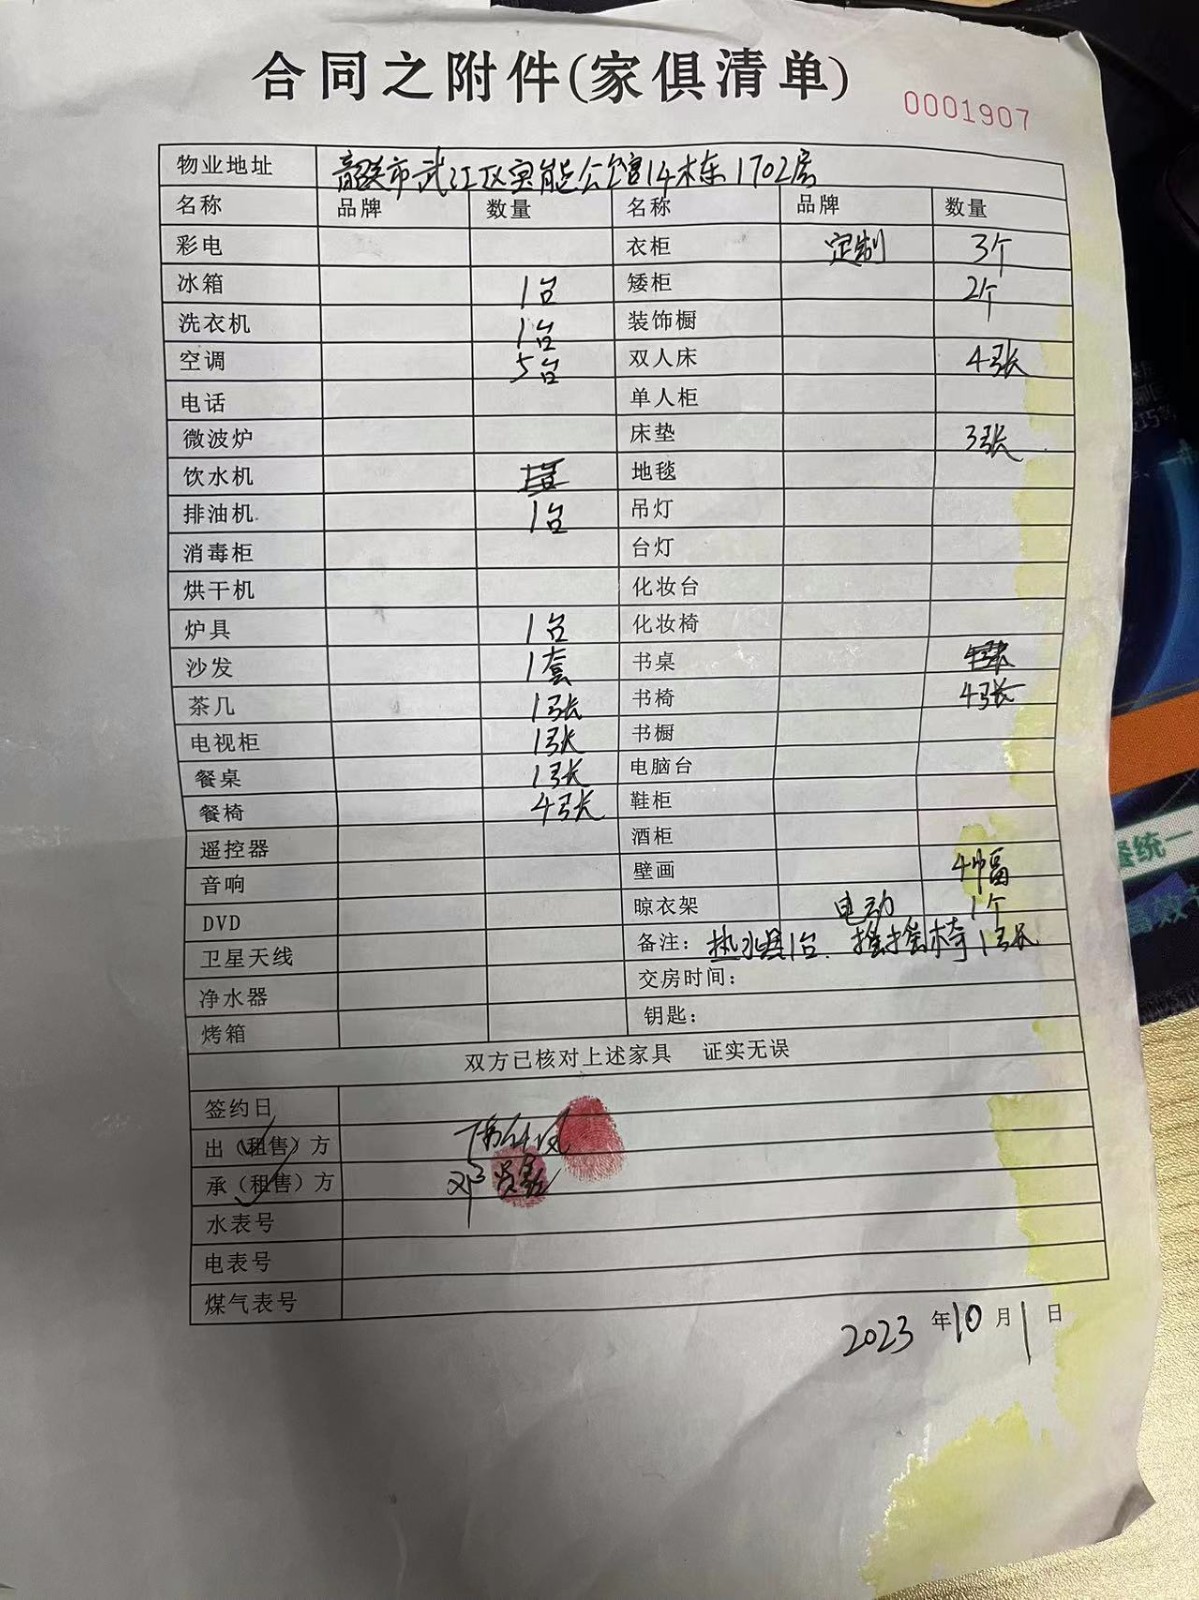 合同之附件(家俱清单)
0001907
物业地址 韶关市武江区奥能公馆14栋1702房
名称 品牌 数量 名称 品牌 数量
彩电 衣柜 定制 3个
冰箱 1台 矮柜 2个
洗衣机 1台 装饰橱
空调 5台 双人床 4张
电话 单人柜
微波炉 床垫 3张
饮水机 地毯
排油机 1台 吊灯
消毒柜 台灯
烘干机 化妆台
炉具 1台 化妆椅
沙发 1套 书桌
茶几 1张 书椅 4张
电视柜 1张 书橱
餐桌 1张 电脑台
餐椅 4张 鞋柜
遥控器 酒柜
音响 壁画 4幅
DVD 晾衣架 电动 1个
卫星天线 备注：热水器1台、摇摇椅1张
净水器 交房时间：
烤箱 钥匙：
双方已核对上述家具 证实无误
签约日
出（租售）方
承（租售）方
水表号
电表号
煤气表号
2023年10月1日
餐统一
高效